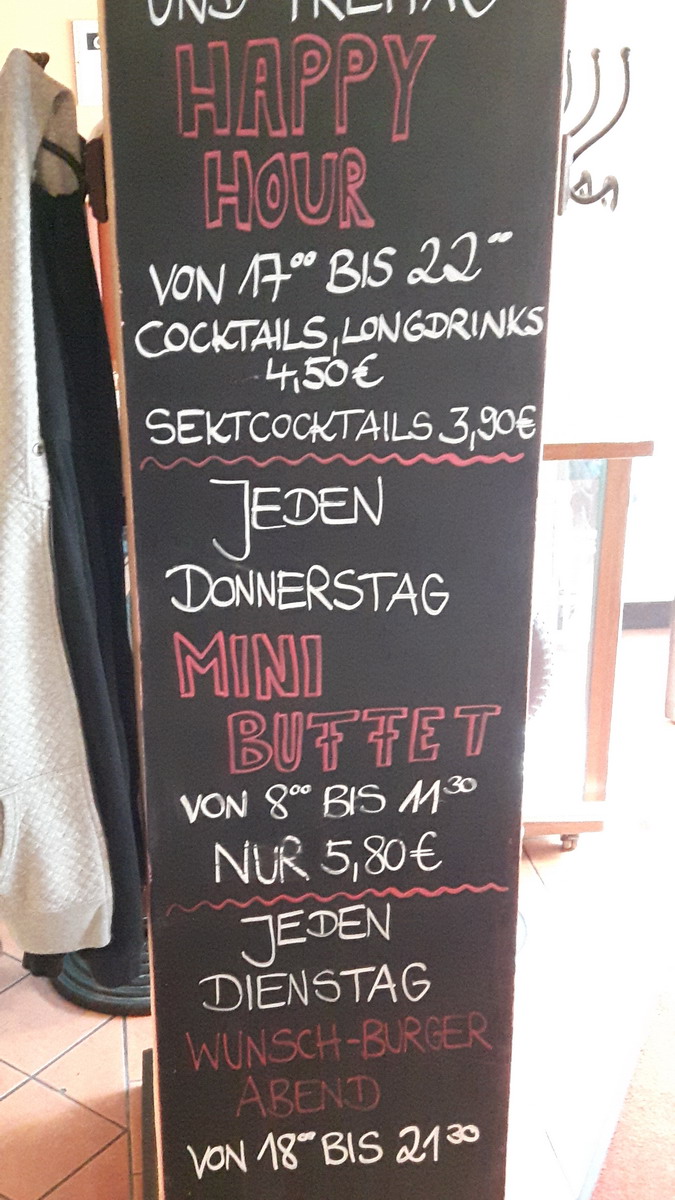 UND FREITAG
HAPPY
HOUR
VON 17⁰⁰ BIS 22⁰⁰
COCKTAILS, LONGDRINKS
4,50€
SEKTCOCKTAILS 3,90€
JEDEN
DONNERSTAG
MINI
BUFFET
VON 8⁰⁰ BIS 11³⁰
NUR 5,80€
JEDEN
DIENSTAG
WUNSCH-BURGER
ABEND
VON 18⁰⁰ BIS 21³⁰